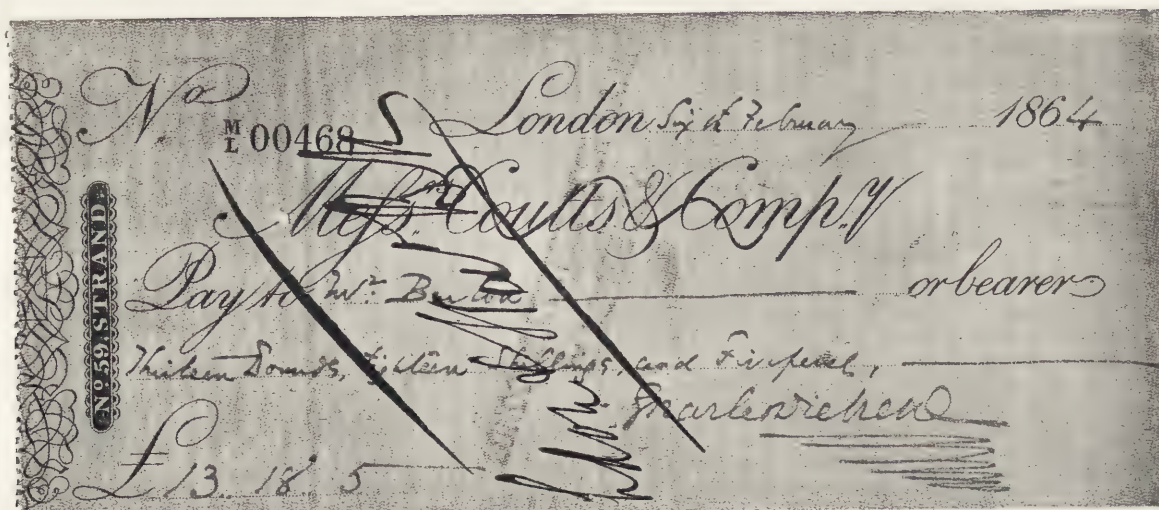 No. M/L 00468 London Sixth February 1864
Messrs. Coutts & Compy.
No 59, STRAND
Pay to Mr or bearer
Thirteen Pounds, Eighteen Shillings, and Fivepence,
Charles Dickens
£13.. 18. 5